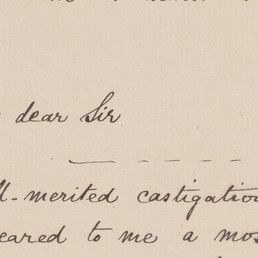 dear Sir
ll-merited castigation
eared to me a mos